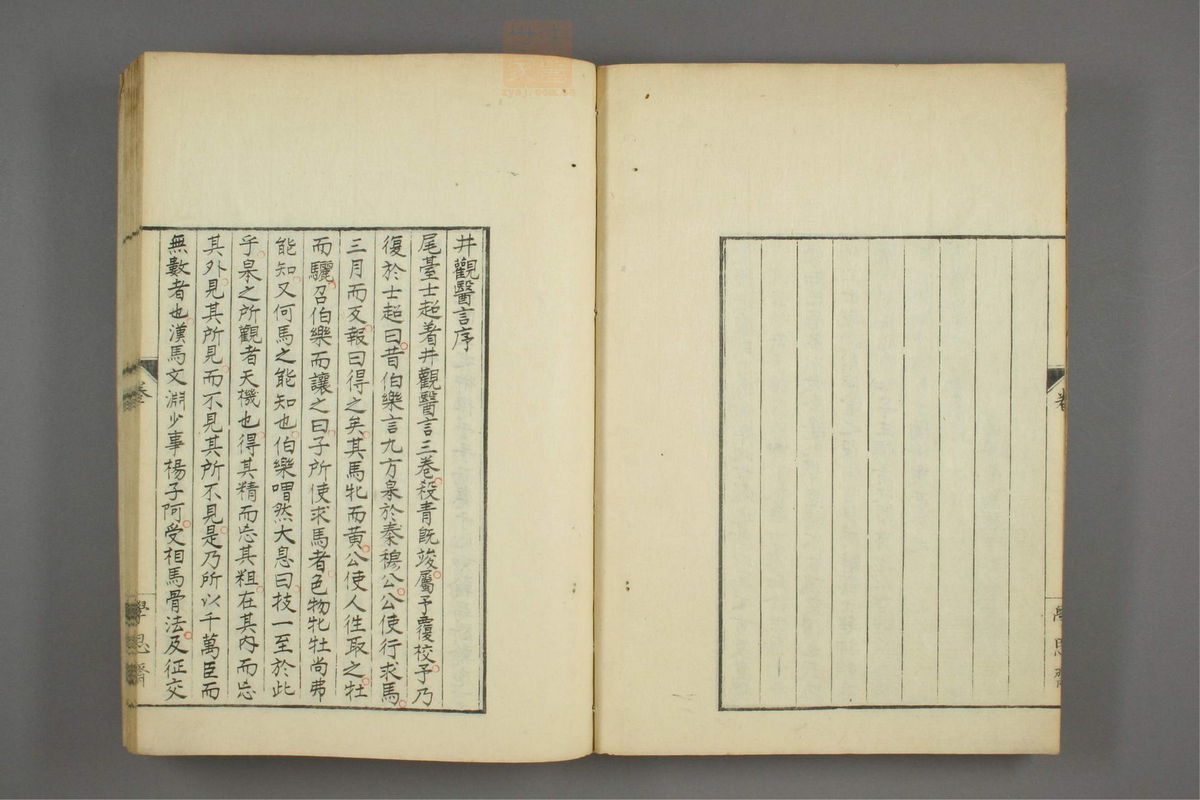 井觀醫言序
尾臺士超著井觀醫言三卷殺青既竣屬予覆校予乃
復於士超曰昔伯樂言九方皋於秦穆公公使行求馬
三月而反報曰得之矣其馬牝而黃公使人往取之牡
而驪召伯樂而讓之曰子所使求馬者色物牝牡尚弗
能知又何馬之能知也伯樂喟然大息曰技一至於此
乎皋之所觀者天機也得其精而忘其粗在其內而忘
其外見其所見而不見其所不見是乃所以千萬臣而
無數者也漢馬文淵少事楊子阿受相馬骨法及征交
卷
學思齋